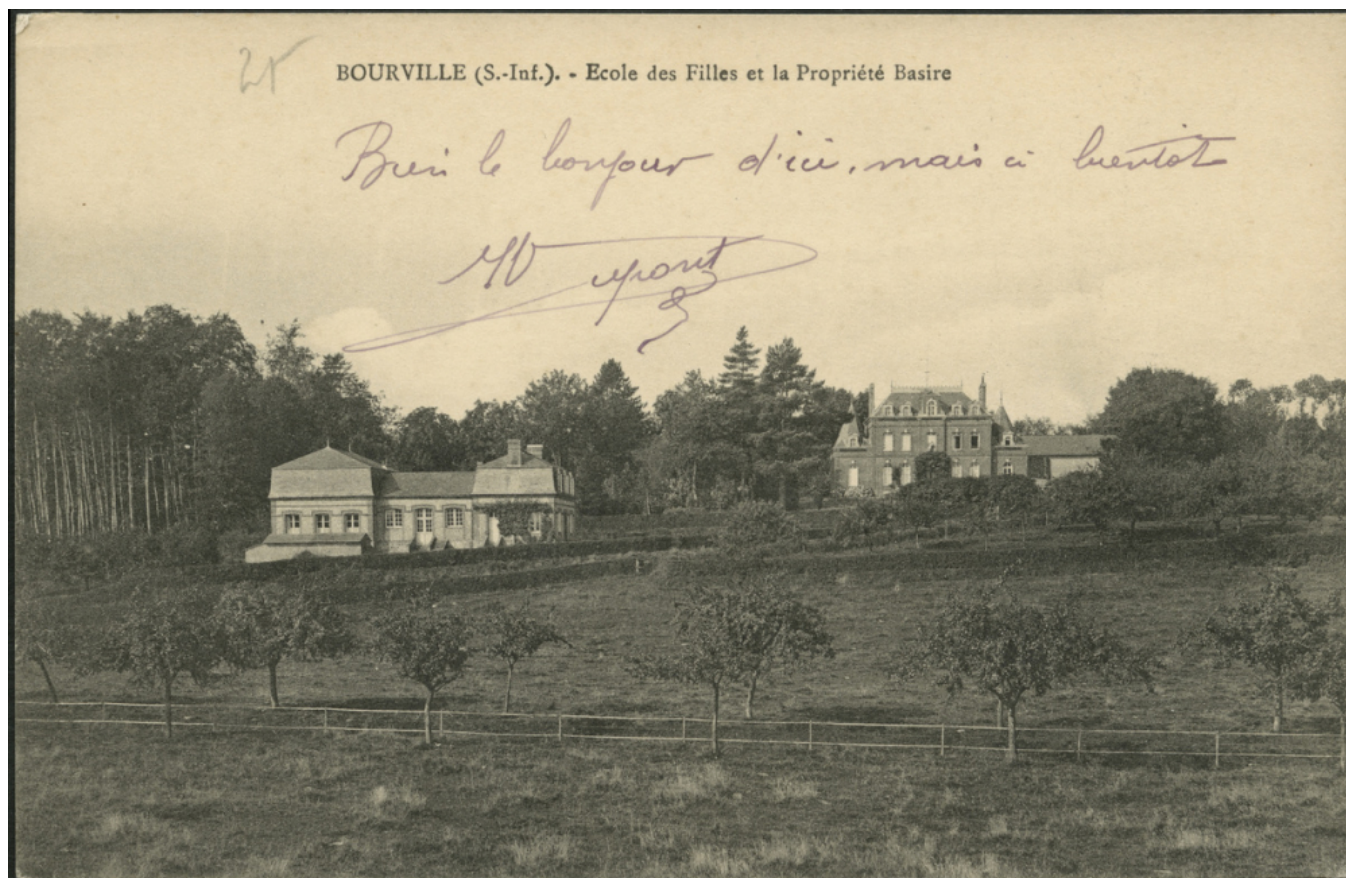 BOURVILLE (S.-Inf.). - Ecole des Filles et la Propriété Basire
Bien le bonjour d'ici, mais à bientot